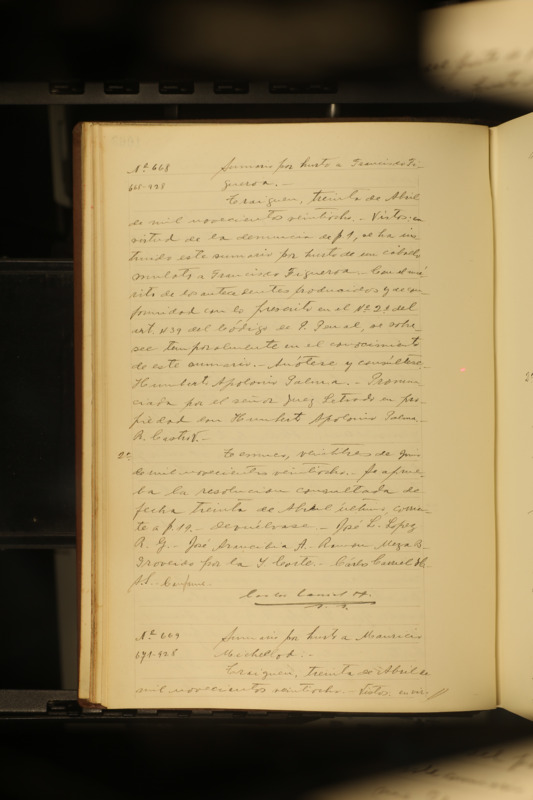 Nº 668 Sumario por hurto a Francisco Fi-
668-928 gueroa.-
Traiguen, treinta de Abril
de mil novecientos veintiocho.- Vistos: en
virtud de la denuncia de f 1, se ha ins
truido este sumario por hurto de un caballo
mulato a Francisco Figueroa.- Con el mé
rito de los antecedentes producidos y de con
formidad con lo prescrito en el Nº 2º del
art. 439 del Código de P. Penal, se sobre
see temporalmente en el conocimiento
de este sumario.- Anótese y consúltese.
Humberto Apolonio Palma.- Pronun
ciada por el señor Juez Letrado en pro-
piedad don Humberto Apolonio Palma.-
R. Castro V.-
2ª Temuco, veintitres de Junio
de mil novecientos veintiocho.- Se aprue-
ba la resolucion consultada de
fecha treinta de Abril último, corrien
te a f 19.- Devuélvase.- José L. Lopez
R. G.- José Arancibia A. Ramon Meza B.
Proveido por la I. Corte.- Cárlos
S. S. Conforme.
Carlos
S. S.
Nº 669 Sumario por hurto a Mauricio
671-928 Michellod.-
Traiguen, treinta de Abril de
mil novecientos veintiocho.- Vistos: en vir//